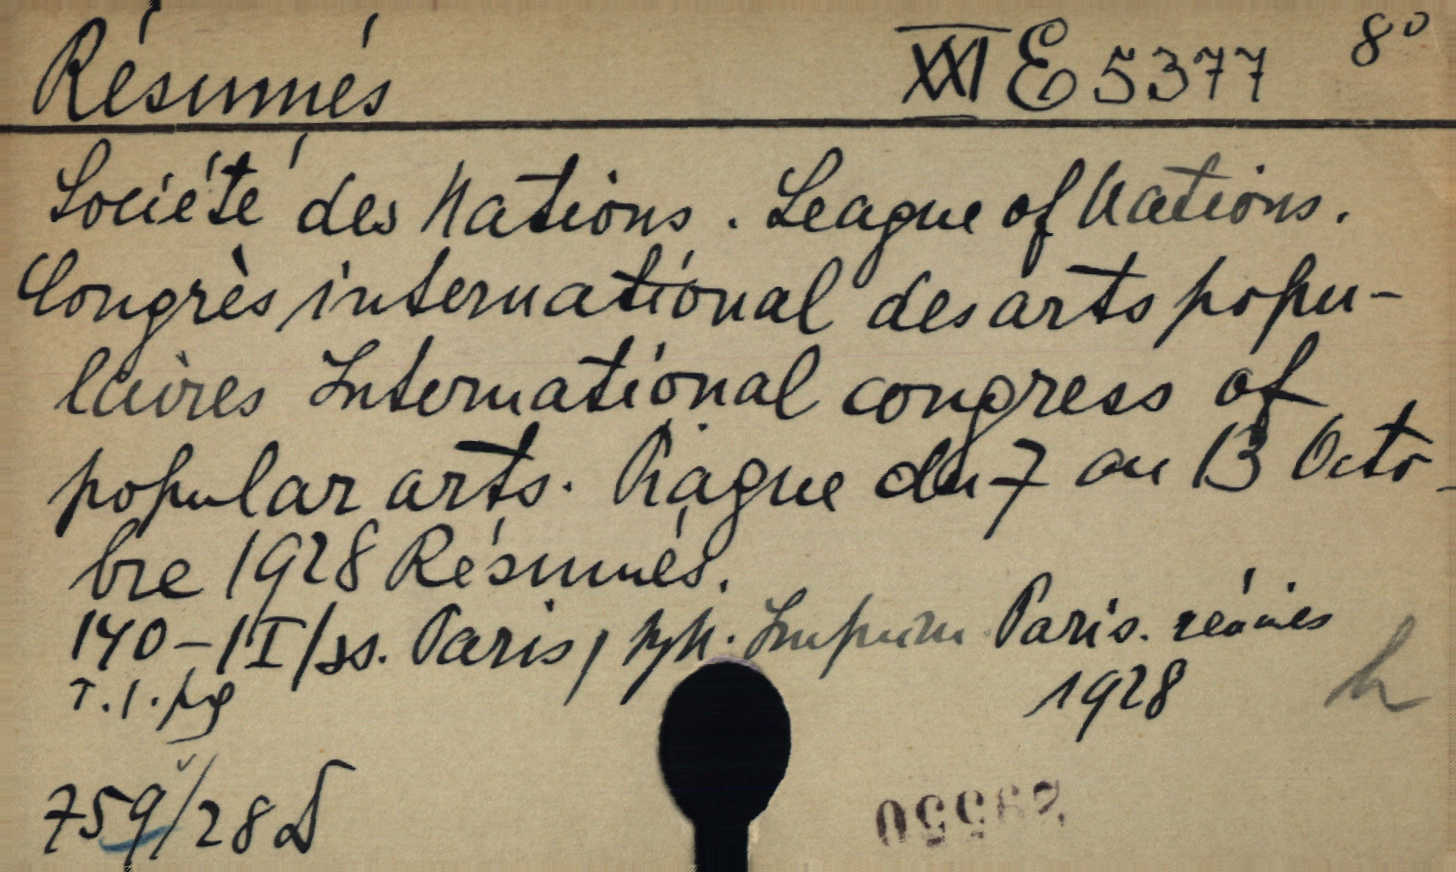 Résumés XXI E 5377 8°
Société des Nations. League of Nations.
Congrès international des arts popu-
laires International congress of
popular arts. Prague du 7 au 13 Octo-
bre 1928 Résumés.
140-1I/ss. Paris, typ. Paris. réunies
T.1. pg 1928 h
759/28 D